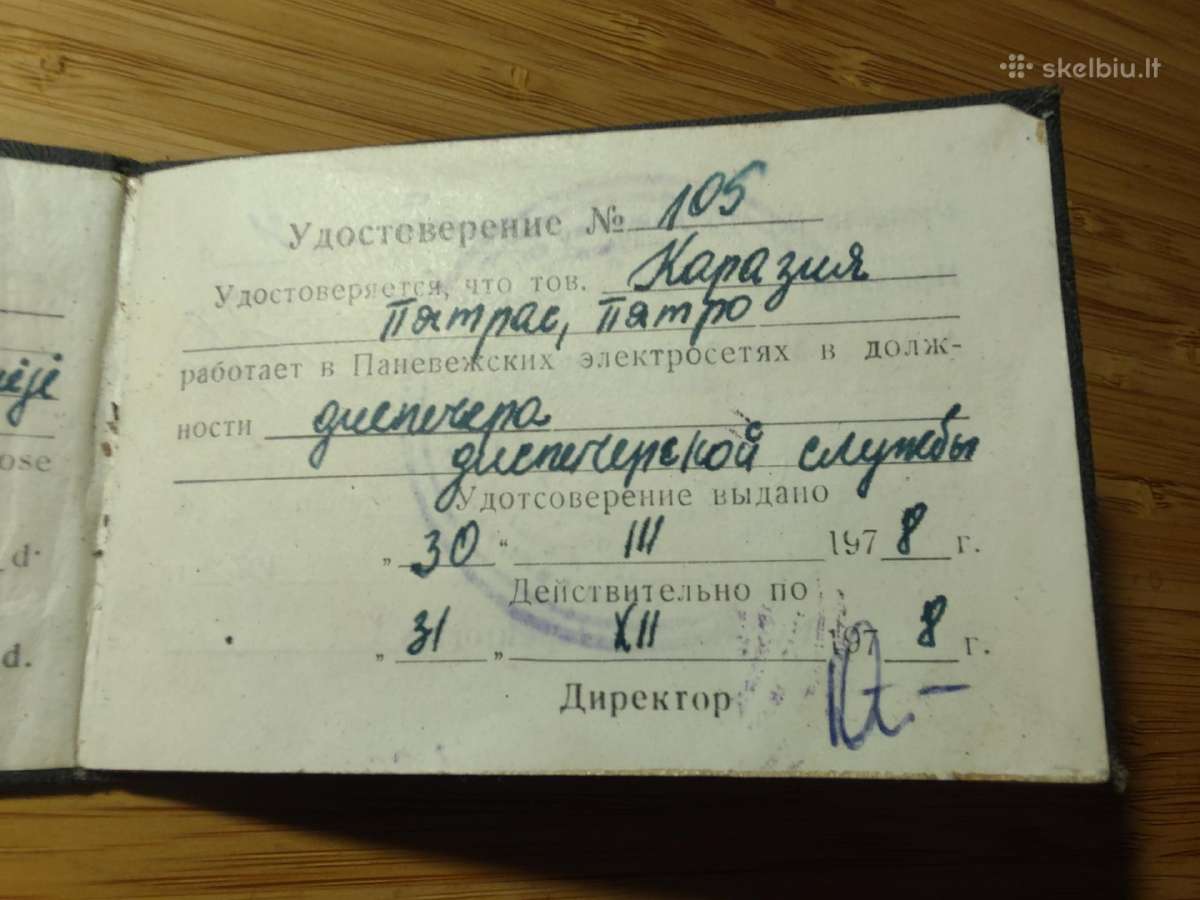 skelbiu.lt
ose
d.
d.
Удостоверение № 105
Удостоверяется, что тов. Каразия
Пятрас, Пятро
работает в Паневежских электросетях в долж-
ности диспечера
диспечерской службы
Удотсоверение выдано
„ 30 “ III 1978 г.
Действительно по
„ 31 „ XII 1978 г.
Директор